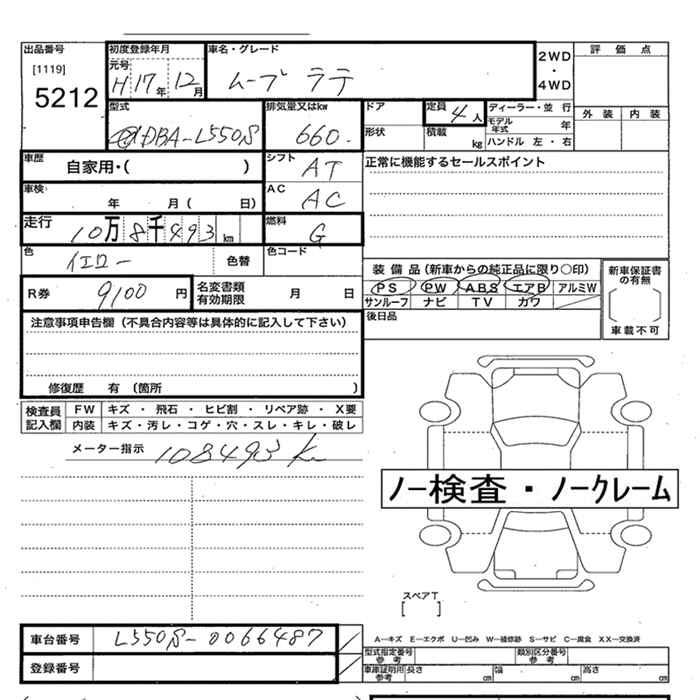 出品番号
[1119]
5212
初度登録年月
元号
H 17 年 12 月
車名・グレード
ムーブ ラテ
2WD
・
4WD
評 価 点
外 装 内 装
型式
DBA-L550S
排気量又はkw
660.
ドア
形状
定員 4 人
積載 kg
ディーラー・並 行
モデル年式 年
ハンドル 左・右
車歴 自家用・( )
シフト AT
正常に機能するセールスポイント
車検 年 月( 日)
AC AC
走行 10万8千493km
燃料 G
色 イエロー 色替
色コード
装 備 品 (新車からの純正品に限り○印)
PS PW ABS エアB アルミW
サンルーフ ナビ TV カワ
新車保証書の有無
車載不可
R券 9100 円
名変書類有効期限 月 日
後日品
注意事項申告欄(不具合内容等は具体的に記入して下さい)
修復歴 有(箇所 )
検査員記入欄
FW キズ・飛石・ヒビ割・リペア跡・X要
内装 キズ・汚レ・コゲ・穴・スレ・キレ・破レ
メーター指示 108493 K
ノー検査・ノークレーム
スペアT
[ ]
車台番号 L550S-0066487
登録番号
A―キズ E―エクボ U―凹み W―補修跡 S―サビ C―腐食 XX―交換済
型式指定番号参考
類別区分番号参考
車庫証明用参考 長さ cm 幅 cm 高さ cm